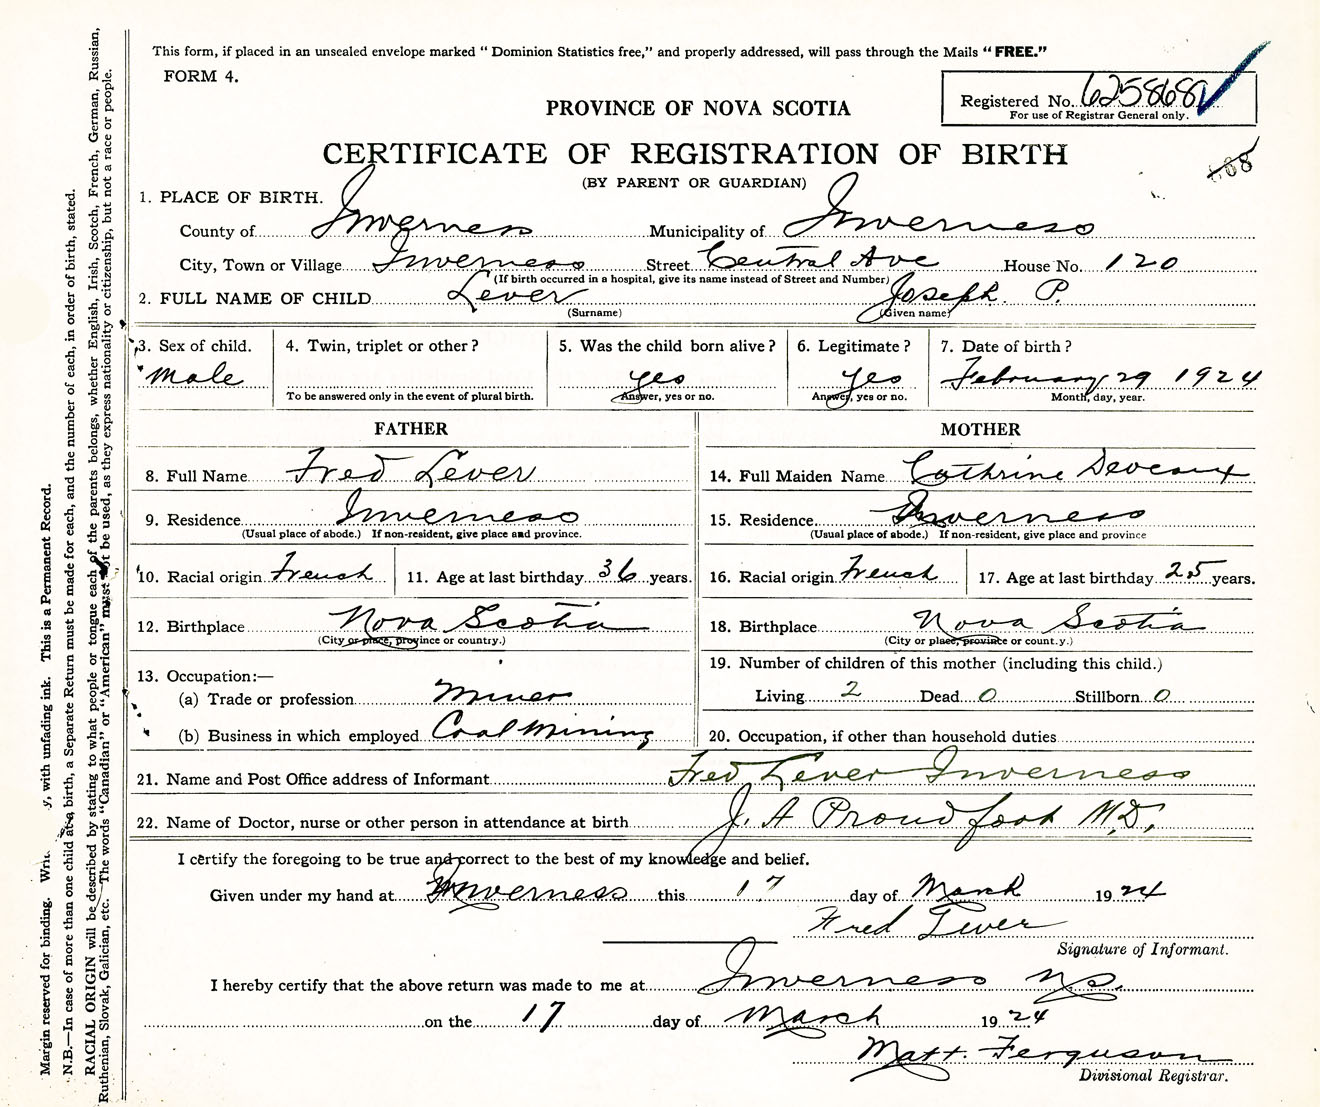 This form, if placed in an unsealed envelope marked “ Dominion Statistics free,” and properly addressed, will pass through the Mails “ FREE.”
FORM 4.
Registered No. 625868
For use of Registrar General only.
PROVINCE OF NOVA SCOTIA
CERTIFICATE OF REGISTRATION OF BIRTH
(BY PARENT OR GUARDIAN)
1. PLACE OF BIRTH.
County of Inverness Municipality of Inverness
City, Town or Village Inverness Street Central Ave House No. 120
(If birth occurred in a hospital, give its name instead of Street and Number)
2. FULL NAME OF CHILD Lever Joseph P.
(Surname) (Given name)
3. Sex of child. 4. Twin, triplet or other? 5. Was the child born alive? 6. Legitimate? 7. Date of birth?
Male yes yes February 29 1924
To be answered only in the event of plural birth. Answer, yes or no. Answer, yes or no. Month, day, year.
FATHER MOTHER
8. Full Name Fred Lever 14. Full Maiden Name Cathrine Deveaux
9. Residence Inverness 15. Residence Inverness
(Usual place of abode.) If non-resident, give place and province. (Usual place of abode.) If non-resident, give place and province
10. Racial origin French 11. Age at last birthday 36 years. 16. Racial origin French 17. Age at last birthday 25 years.
12. Birthplace Nova Scotia 18. Birthplace Nova Scotia
(City or place, province or country.) (City or place, province or count.y.)
13. Occupation:— 19. Number of children of this mother (including this child.)
(a) Trade or profession Miner Living 2 Dead 0 Stillborn 0
(b) Business in which employed Coal Mining 20. Occupation, if other than household duties
21. Name and Post Office address of Informant Fred Lever Inverness
22. Name of Doctor, nurse or other person in attendance at birth J. A Proudfoot M.D.
I certify the foregoing to be true and correct to the best of my knowledge and belief.
Given under my hand at Inverness this 17 day of March 1924
Fred Lever
Signature of Informant.
I hereby certify that the above return was made to me at Inverness NS.
on the 17 day of March 1924
Matt. Ferguson
Divisional Registrar.
Margin reserved for binding. with unfading ink. This is a Permanent Record.
N.B.—In case of more than one child at a birth, a Separate Return must be made for each, and the number of each, in order of birth, stated.
RACIAL ORIGIN will be described by stating to what people or tongue each of the parents belongs, whether English, Irish, Scotch, French, German, Russian,
Ruthenian, Slovak, Galician, etc. The words “Canadian” or “American” must not be used, as they express nationality or citizenship, but not a race or people.